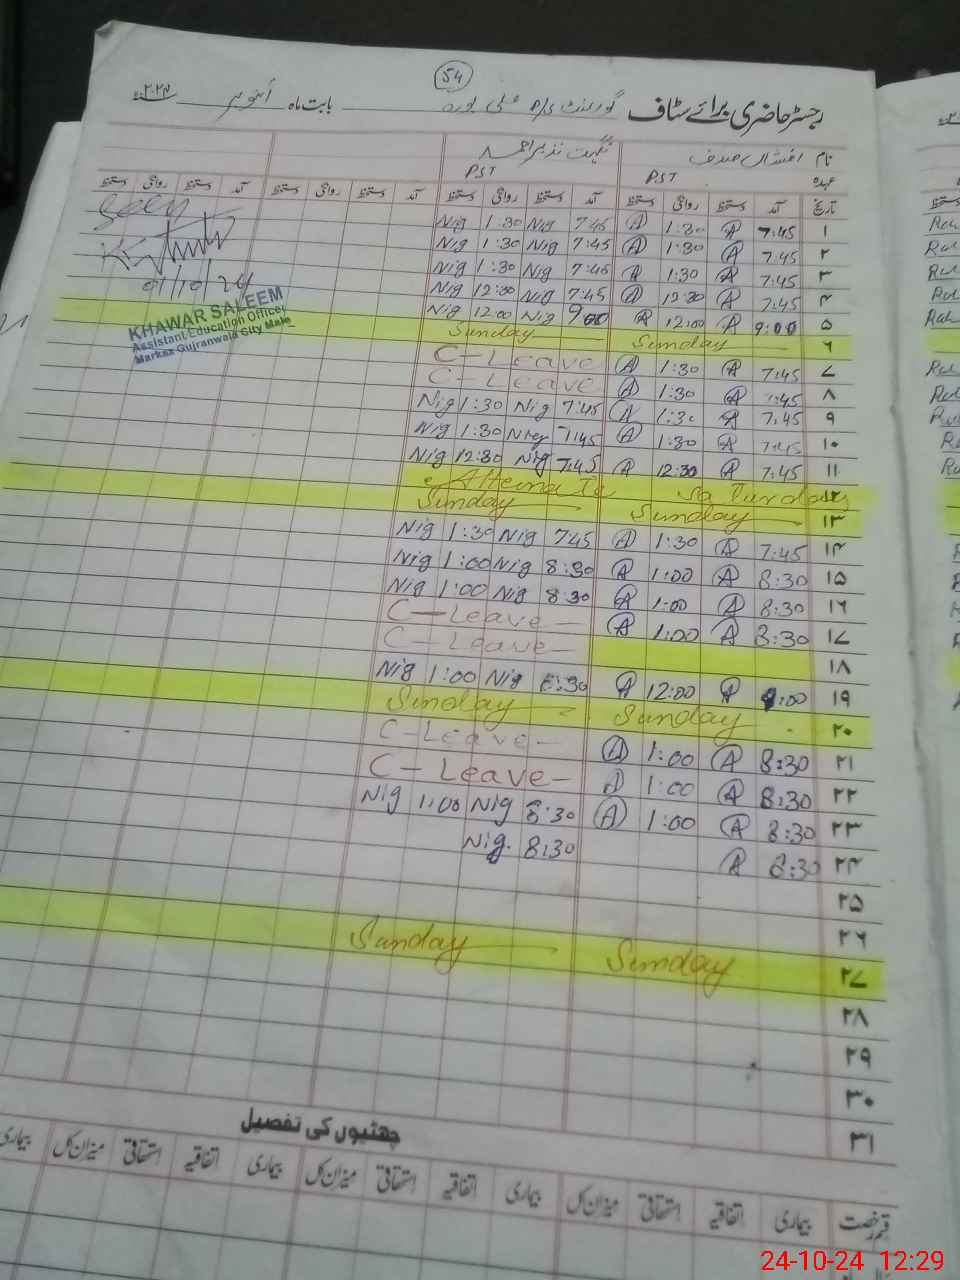 54
رجسٹر حاضری برائے سٹاف گورنمنٹ P/S علی پورہ بابت ماہ اکتوبر ۲۰۲۴
نام افشاں صدف نگہت نذیر احمد
عہدہ PST PST
تاریخ آمد دستخط روانگی دستخط آمد دستخط روانگی دستخط آمد دستخط روانگی دستخط آمد دستخط روانگی دستخط
Nig 1:30 Nig 7:45 A 1:30 A 7:45 ۱
Nig 1:30 Nig 7:45 A 1:30 A 7:45 ۲
Nig 1:30 Nig 7:45 A 1:30 A 7:45 ۳
Nig 12:30 Nig 7:45 A 12:30 A 7:45 ۴
Nig 12:00 Nig 9:00 A 12:00 A 9:00 ۵
Sunday Sunday ۶
C-Leave A 1:30 A 7:45 ۷
C-Leave A 1:30 A 7:45 ۸
Nig 1:30 Nig 7:45 A 1:30 A 7:45 ۹
Nig 1:30 Nig 7:45 A 1:30 A 7:45 ۱۰
Nig 12:30 Nig 7:45 A 12:30 A 7:45 ۱۱
Saturday ۱۲
Sunday Sunday ۱۳
Nig 1:30 Nig 7:45 A 1:30 A 7:45 ۱۴
Nig 1:00 Nig 8:30 A 1:00 A 8:30 ۱۵
Nig 1:00 Nig 8:30 A 1:00 A 8:30 ۱۶
C-Leave A 1:00 A 8:30 ۱۷
C-Leave ۱۸
Nig 1:00 Nig 8:30 A 12:00 A 9:00 ۱۹
Sunday Sunday ۲۰
C-Leave A 1:00 A 8:30 ۲۱
C-Leave A 1:00 A 8:30 ۲۲
Nig 1:00 Nig 8:30 A 1:00 A 8:30 ۲۳
Nig. 8:30 A 8:30 ۲۴
۲۵
۲۶
Sunday Sunday ۲۷
۲۸
۲۹
۳۰
۳۱
Seen
01/10/24
KHAWAR SALEEM
Assistant Education Officer
Markaz Gujranwala City Male
چھٹیوں کی تفصیل
قسم رخصت بیماری اتفاقیہ استحقاقی میزان کل بیماری اتفاقیہ استحقاقی میزان کل بیماری اتفاقیہ استحقاقی میزان کل بیماری
24-10-24 12:29